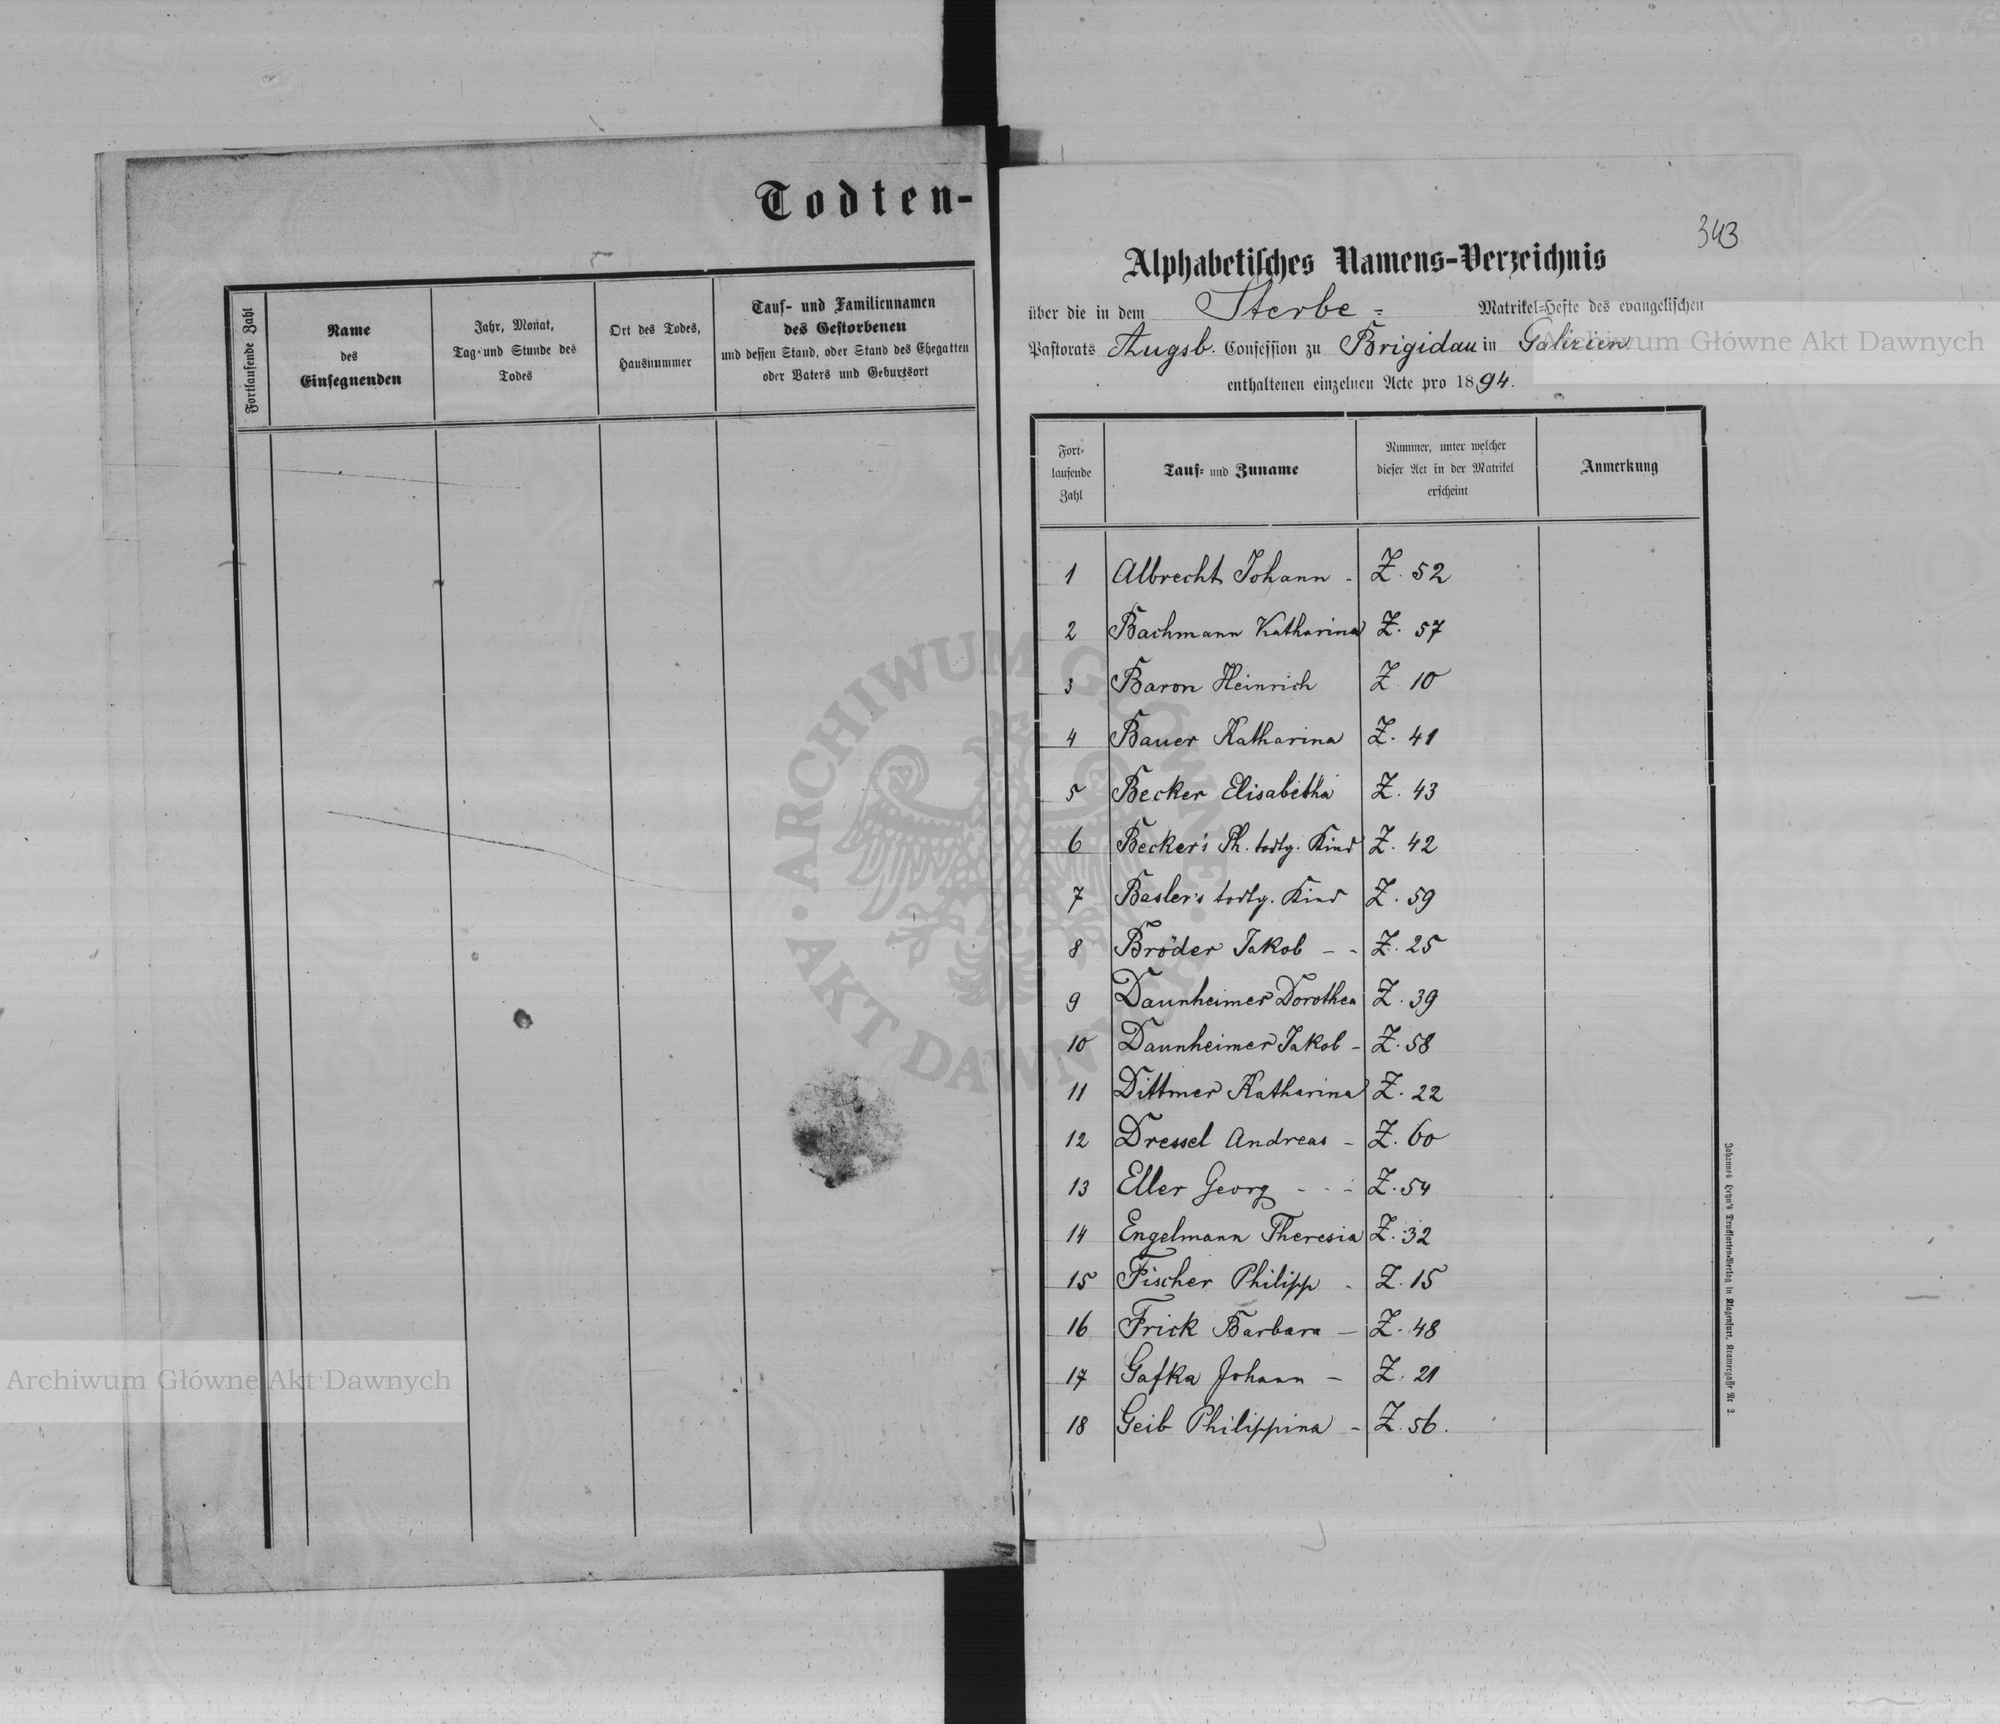 Todten-
Fortlaufende Zahl
Name
des
Einsegnenden
Jahr, Monat,
Tag und Stunde des
Todes
Ort des Todes,
Hausnummer
Tauf- und Familiennamen
des Gestorbenen
und dessen Stand, oder Stand des Ehegatten
oder Vaters und Geburtsort
343
Alphabetisches Namens-Verzeichnis
über die in dem Sterbe- Matrikel-Hefte des evangelischen
Pastorats Augsb. Confession zu Brigidau in Galizien
enthaltenen einzelnen Acte pro 1894.
Fort-
laufende
Zahl
Tauf- und Zuname
Nummer, unter welcher
dieser Act in der Matrikel
erscheint
Anmerkung
1 Albrecht Johann - Z. 52
2 Bachmann Katharina Z. 57
3 Baron Heinrich Z. 10
4 Bauer Katharina Z. 41
5 Becker Elisabetha Z. 43
6 Becker's Ph. todtg. Kind Z. 42
7 Basler's todtg. Kind Z. 59
8 Bröder Jakob - - Z. 25
9 Daunheimer Dorothea Z. 39
10 Daunheimer Jakob - Z. 58
11 Dittmer Katharina Z. 22
12 Dressel Andreas - Z. 60
13 Eller Georg - - - Z. 54
14 Engelmann Theresia Z. 32
15 Fischer Philipp - Z. 15
16 Frick Barbara - Z. 48
17 Gafka Johann - Z. 21
18 Geib Philippina - Z. 56.
Johannes Heyn's Drucksorten-Verlag in Klagenfurt, Kramergasse Nr 2
Archiwum Główne Akt Dawnych
Archiwum Główne Akt Dawnych
ARCHIWUM GŁÓWNE · AKT DAWNYCH ·